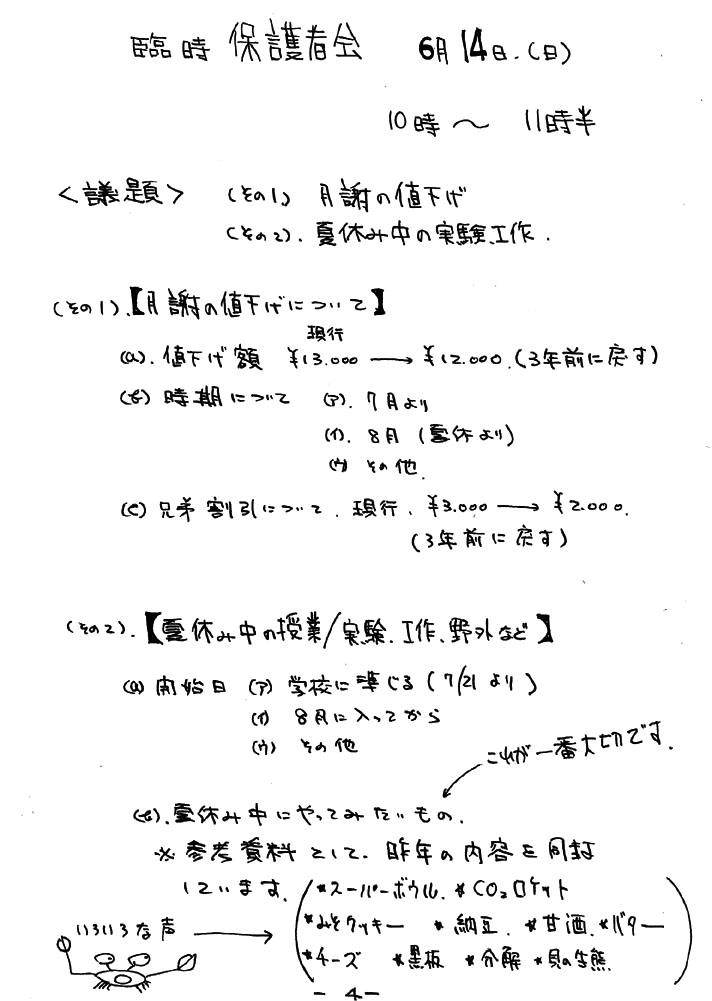 臨時 保護者会 6月14日.(日)
10時〜 11時半
<議題> (その1) 月謝の値下げ
(その2). 夏休み中の実験、工作.
(その1).【月謝の値下げについて】
現行
(a). 値下げ額 ¥13.000 → ¥12.000.(3年前に戻す)
(b) 時期について (ア). 7月より
(イ). 8月(夏休より)
(ウ) その他.
(c) 兄弟割引について. 現行、¥3.000 → ¥2.000.
(3年前に戻す)
(その2).【夏休み中の授業/実験、工作、野外など】
(a) 開始日 (ア) 学校に準じる(7/21より)
(イ) 8月に入ってから
(ウ) その他
これが一番大切です.
(b).夏休み中にやってみたいもの.
※参考資料として、昨年の内容を同封
しています.
(*スーパーボウル. *CO₂ロケット
*みそクッキー *納豆. *甘酒.*バター
*チーズ *黒板 *分解 *貝の生態)
いろいろな声 →
- 4 -